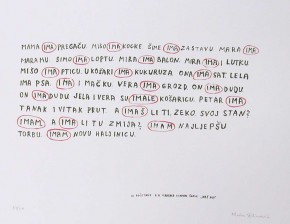 MAMA IMA PREGAČU. MIŠO IMA KOCKE. ŠIME IMA ZASTAVU. MARA IMA
MARAMU. SIMO IMA LOPTU. MIRA IMA BALON. MIRA IMA I LUTKU.
MIŠO IMA PTICU. U KOŠARI IMA KUKURUZA. ONA IMA SAT. LELA
IMA PSA. IMA I MAČKU. VERA IMA GROZD. ON IMA DUDU.
ON IMA DUDU. JELA I VERA SU IMALE KOŠARICU. PETAR IMA
TANAK I VITAK PRUT. A IMAŠ LI TI, ZEKO, SVOJ STAN?
IMAM. A IMA LI TU ZMIJA? IMAM NAJLJEPŠU
TORBU. IMAM NOVU HALJINICU.